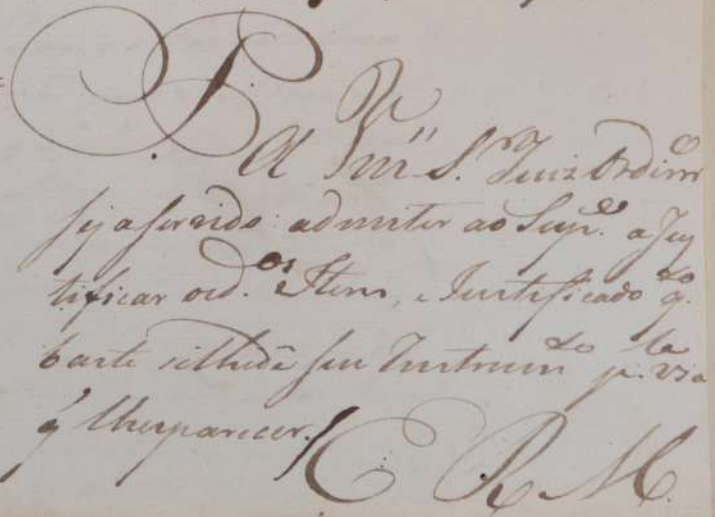 P. A Vm.ce S.r Juiz Ordinr.o
seja servido admiter ao Sup.e a Jus
tificar os d.os Itens, e Justificado q.to
baste se lhe dê seu Instrum.to p.la via
q̃ lhe parecer./
E R M.